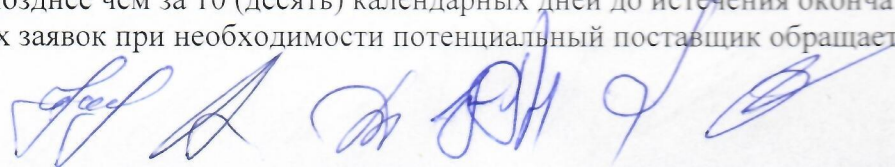 позднее чем за 10 (десять) календарных дней до истечения оконча
х заявок при необходимости потенциальный поставщик обращает